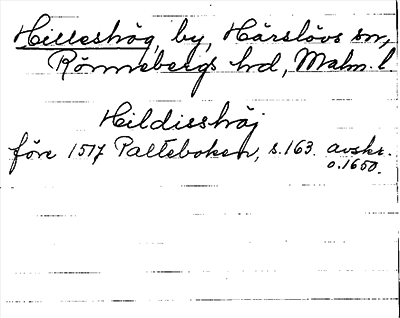 Hilleshög, by, Härslövs sn,
Rönnebergs hd, Malm. l.
Hildisshøj
före 1517 Palteboken, s.163. avskr.
o.1650.